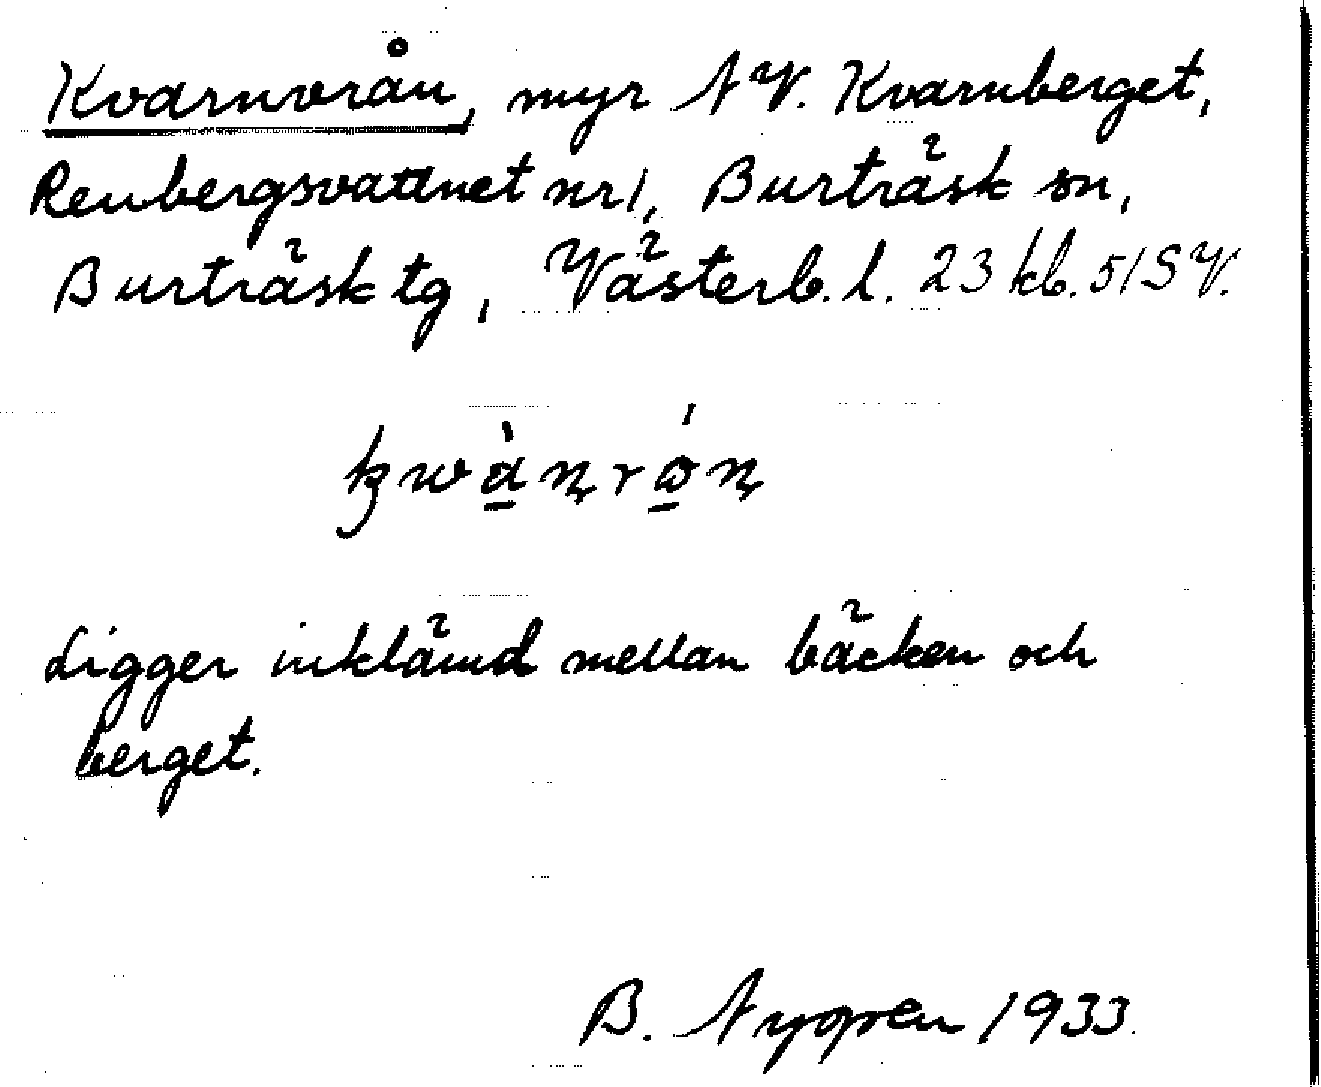 Kvarnvrån, myr NV. Kvarnberget,
Renbergsvattnet nr 1, Burträsk sn,
Burträsk tg, Västerb. l. 23 kb. 51SV.
Ligger inklämd mellan bäcken och
berget.
B. Nygren 1933